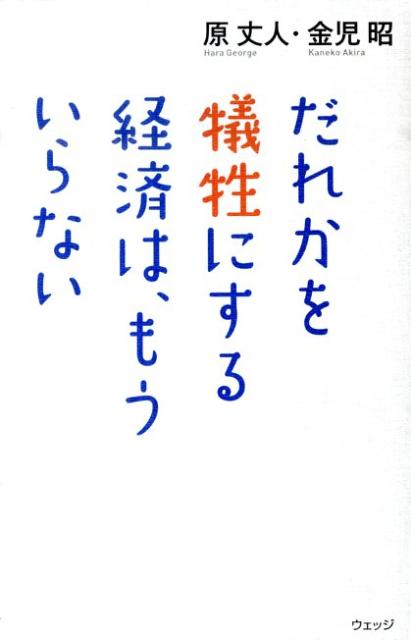 原 丈人・金児 昭
Hara George Kaneko Akira
だれかを
犠牲にする
経済は、もう
いらない
ウェッジ